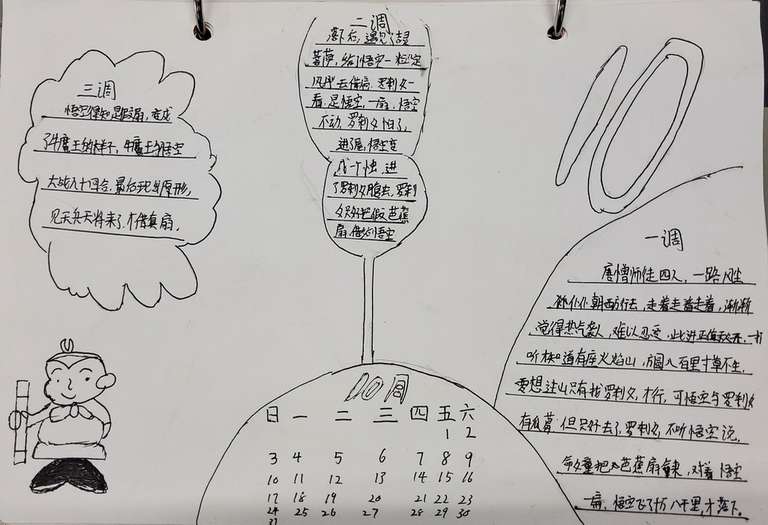 三调
悟空得知是假扇，变成
了牛魔王的样子，牛魔王与悟空
大战八十回合，最后现出原形，
见天兵天将来了，才借真扇。
二调
落下后，遇见了
菩萨，给悟空一粒定
风丹，去借扇，罗刹女一
看是悟空，一扇，悟空
不动，罗刹女怕了，
进了屋，悟空变
成一个虫，进
了罗刹女腹去，罗刹
女只好把假芭蕉
扇借给悟空
10
一调
唐僧师徒四人，一路风尘
朝西行去，走着走着走着，渐渐
觉得热气袭人，难以忍受，此时正值秋天，一打
听，才知道有座火焰山，方圆八百里寸草不生，
要想过山只有找罗刹女，才行，可悟空与罗刹女
有仇，但只好去了，罗刹女不听悟空说，
命女童把芭蕉扇拿来，对着悟空
一扇，悟空飞了十万八千里，才落下。
10月
日 一 二 三 四 五 六
1 2
3 4 5 6 7 8 9
10 11 12 13 14 15 16
17 18 19 20 21 22 23
24 25 26 27 28 29 30
31